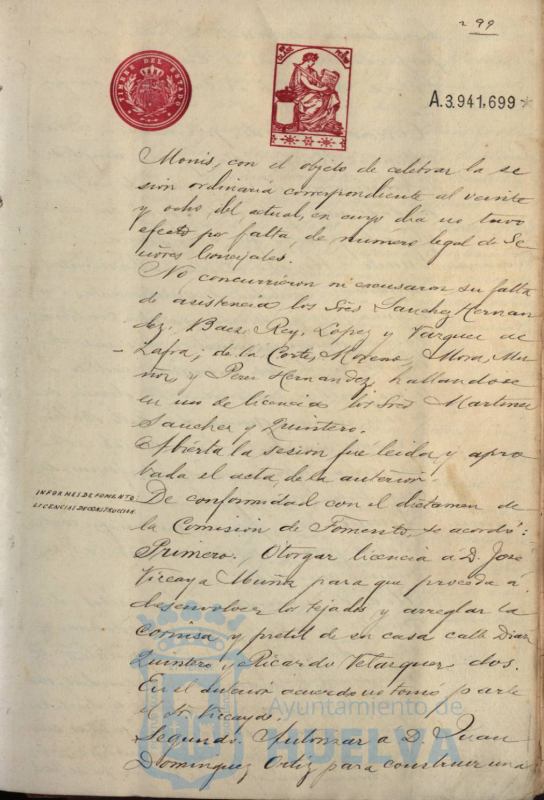 99
TIMBRE DEL ESTADO
A.3.941,699
Monis, con el objeto de celebrar la se
sion ordinaria correspondiente al veinte
y ocho del actual, en cuyo dia no tuvo
efecto por falta de número legal de Se
ñores Concejales.
No concurrieron ni excusaron su falta
de asistencia los Sres Sanchez Hernan
dez, Baez, Rey, Lopez y Vazquez de
Zafra, de la Corte, Moreno, Mora, Mu
ñoz, y Perez Hernandez, hallandose
en uso de licencia los Sres Martinez
Sanchez y Quintero.
Abierta la sesion fué leida y apro
bada el acta de la anterior.
INFORMES DE FOMENTO
LICENCIAS DE CONSTRUCCION
De conformidad con el dictamen de
la Comision de Fomento, se acordó:
Primero. Otorgar licencia á D. José
Vizcaya Muñiz para que proceda á
desenvolver los tejados y arreglar la
cornisa y pretil de su casa calle Diaz
Quintero y Ricardo Velazquez dos.
En el anterior acuerdo no tomó parte
el Sr Vizcaya.
Segundo. Autorizar a D Juan
Dominguez Ortiz para construir una
Ayuntamiento de
HUELVA